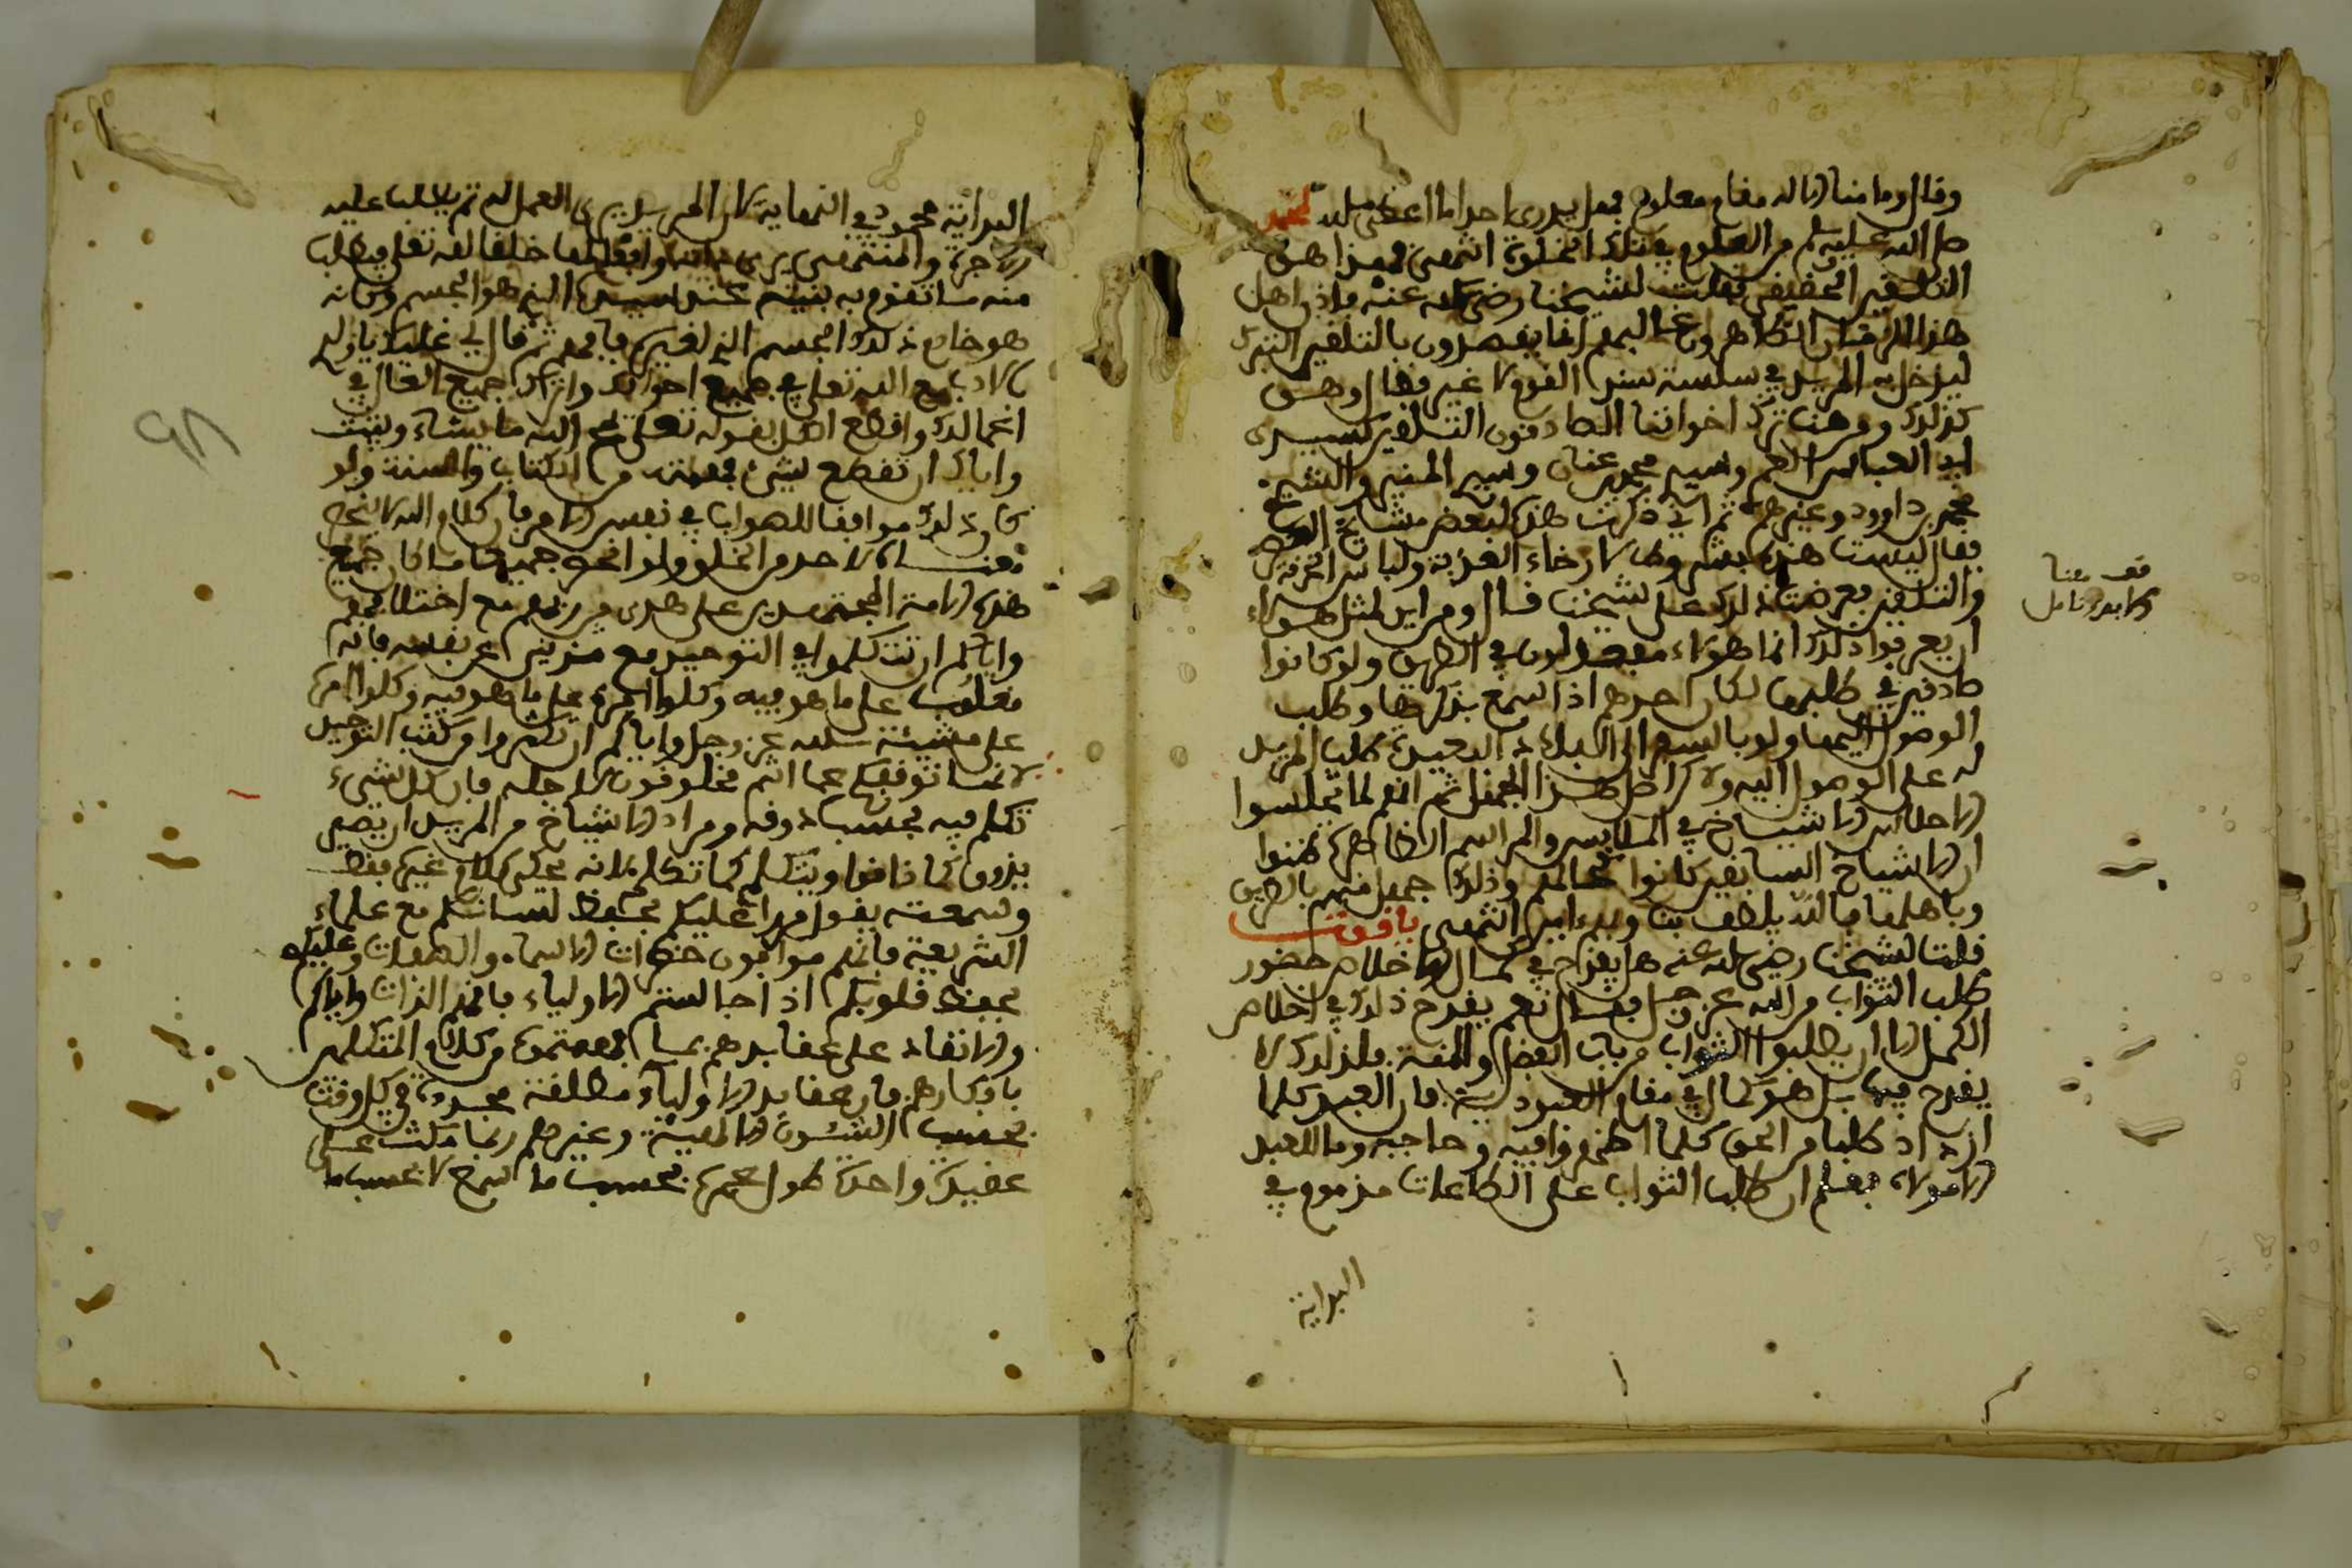 وقال وما منا الا له مقام معلوم فهل يدرى احد ما اعطى الله لمحمد
صلى الله عليه وسلم من العلوم في تلك الخلوة انتهى فهذا هو
التلقين الحقيقي فقلت لشيخنا رضي الله عنه فاذن اهل
هذا الزمان الظاهرون غالبهم انما يقصدون بالتلقين التبرك
ليدخل المريد في سلسلة سند القوم لا غير فقال وهو
كذلك ومن هنا ترك اخواننا الصادقون التلقين كسيدى
ابي العباس وسيدى محمد عنان وسيدى المنير والشيخ
محمد بن داوود وغيرهم ثم اني ذكرت هذا لبعض مشايخ العصر
فقال ليست هذه بشروط لارخاء العذبة ولباس الخرقة
والتلقين فعرضت ذلك على شيخنا فقال ومن اين لمثل هولاء
ان يعرفوا ذلك انما هولاء في الطريق ولو كانوا
صادقين في طلبها لكان احدهم اذا سمع بذكرها وطلب
الوصول اليها ولو بالسفر الى البلاد البعيدة طلب المريد
له على الوصول اليه ولا كان حصل هذا الجهل ثم انهم لما تلبسوا
باحلاس الاشياخ في الملابس والمراسم الظاهرة ظنوا
ان الاشياخ السابقين كانوا كحالهم وذلك جهل منهم بالطريق
وباهلها فالله يلطف بنا وبهم امين انتهى ياقوت
قلت لشيخنا رضي الله عنه هل يقدح في كمال الاخلاص حضور
طلب الثواب من الله عز وجل فقال نعم يقدح ذلك في اخلاص
الكمل الا ان يطلبوا الثواب من باب الفضل والمنة فلذلك لا
يقدح فيه بل هو كمال في مقام العبودية فان العبد كلما
ازداد طلبا من الحق كلما اظهر فاقته وحاجته وما للعبد
الا مولاه فعلم ان طلب الثواب على الطاعات مذموم في
البداية
قف هنا
ولا بد وتامل
البداية محمود في النهاية لان المريد يرى العمل له ثم يطلب عليه
الاجرة والمنتهى يرى خلقا لله تعلى ويطلب
منه ما تقوم به بنيته الذي هو الجسم وكانه
هو خادم ذلك الجسم الذي لغيره فافهم ثم قال لي عليك يا ولدي
بالادب مع الله تعلى في جميع احوالك واترك جميع القال في
اعمالك واقطع الكل بقوله تعلى يمحو الله ما يشاء ويثبت
واياك ان تقطع بشيء فهمته من الكتاب والسنة ولو
كان ذلك موافقا للصواب في نفس الامر فان كلام الله لا ينحصر
معناه لاحد من الخلق ولو انحصر جميعها ما كان جميع
هذه الامة المجتهدين على هدى من ربهم مع اختلافهم
واياكم ان تتكلموا في التوحيد مع عن نفسه فانه
مغلوب على ما هو فيه وكلوا المرء على ما هو فيه وكلوا امره
على مشيئة الله عز وجل واياكم ان تكثروا من كتب التوحيد
لانها توقفكم عما انتم مخلوقون لاجله فان كل شيء
تكلم فيه بحسب ذوقه ومراد الاشياخ من المريد ان يصير
يذوق كما ذاقوا ويتكلم كما تكلم لا انه يحكى كلام غيره فقط
وسمعته يقول مرارا عليكم بحفظ لسانكم مع علماء
الشريعة فانهم موابون حضرات الاسماء والصفات وعليكم
بحفظ قلوبكم اذا جالستم الاولياء فانهم الذات واياكم
والانتقاد على عقايدهم بما فهمتموه من كلام المتكلمين
بافكارهم فان عقايد الاولياء مطلقة مجددة في كل وقت
بحسب الشئون الالهية وغيرهم ربما مكث على
عقيدة واحدة طول عمره بحسب ما لا بحسب ما